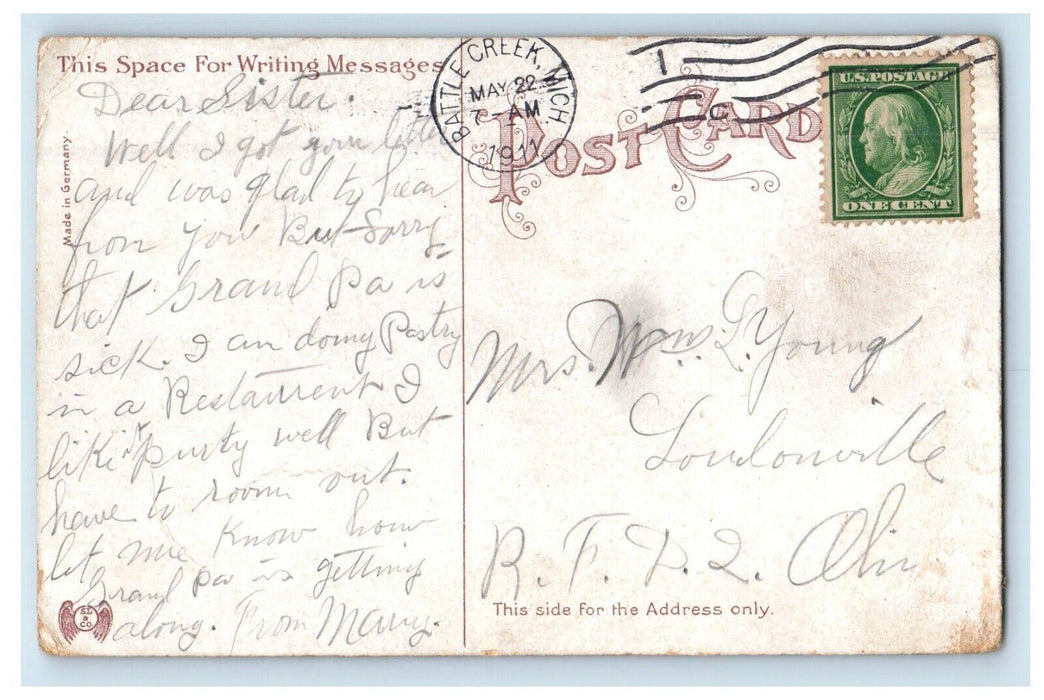 This Space For Writing Messages
Dear Sister.
Well I got your letter
and was glad to hear
from you But Sorry
that Grand Pa is
sick. I am doing Pastry
in a Restaurent I
like it purty well But
have to room out.
let me know how
Grand pa is getting
along. From Mamy.
Made in Germany
SL
&
CO
BATTLE CREEK, MICH
MAY 22
7 - AM
1911
1
C
POST CARD
U.S. POSTAGE
ONE CENT
Mrs. Wm. L. Young
Loudonville
R. F. D. 2. Ohio
This side for the Address only.